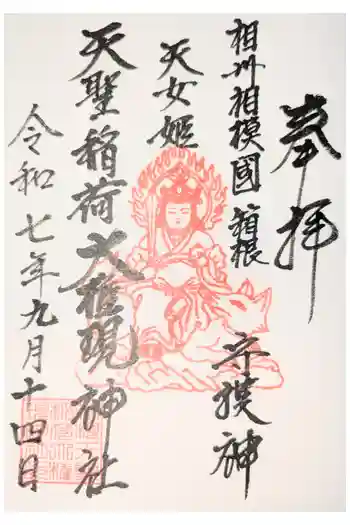 奉拝
相州相模國箱根
守護神
天女姫
天聖稲荷大権現神社
令和七年九月十四日